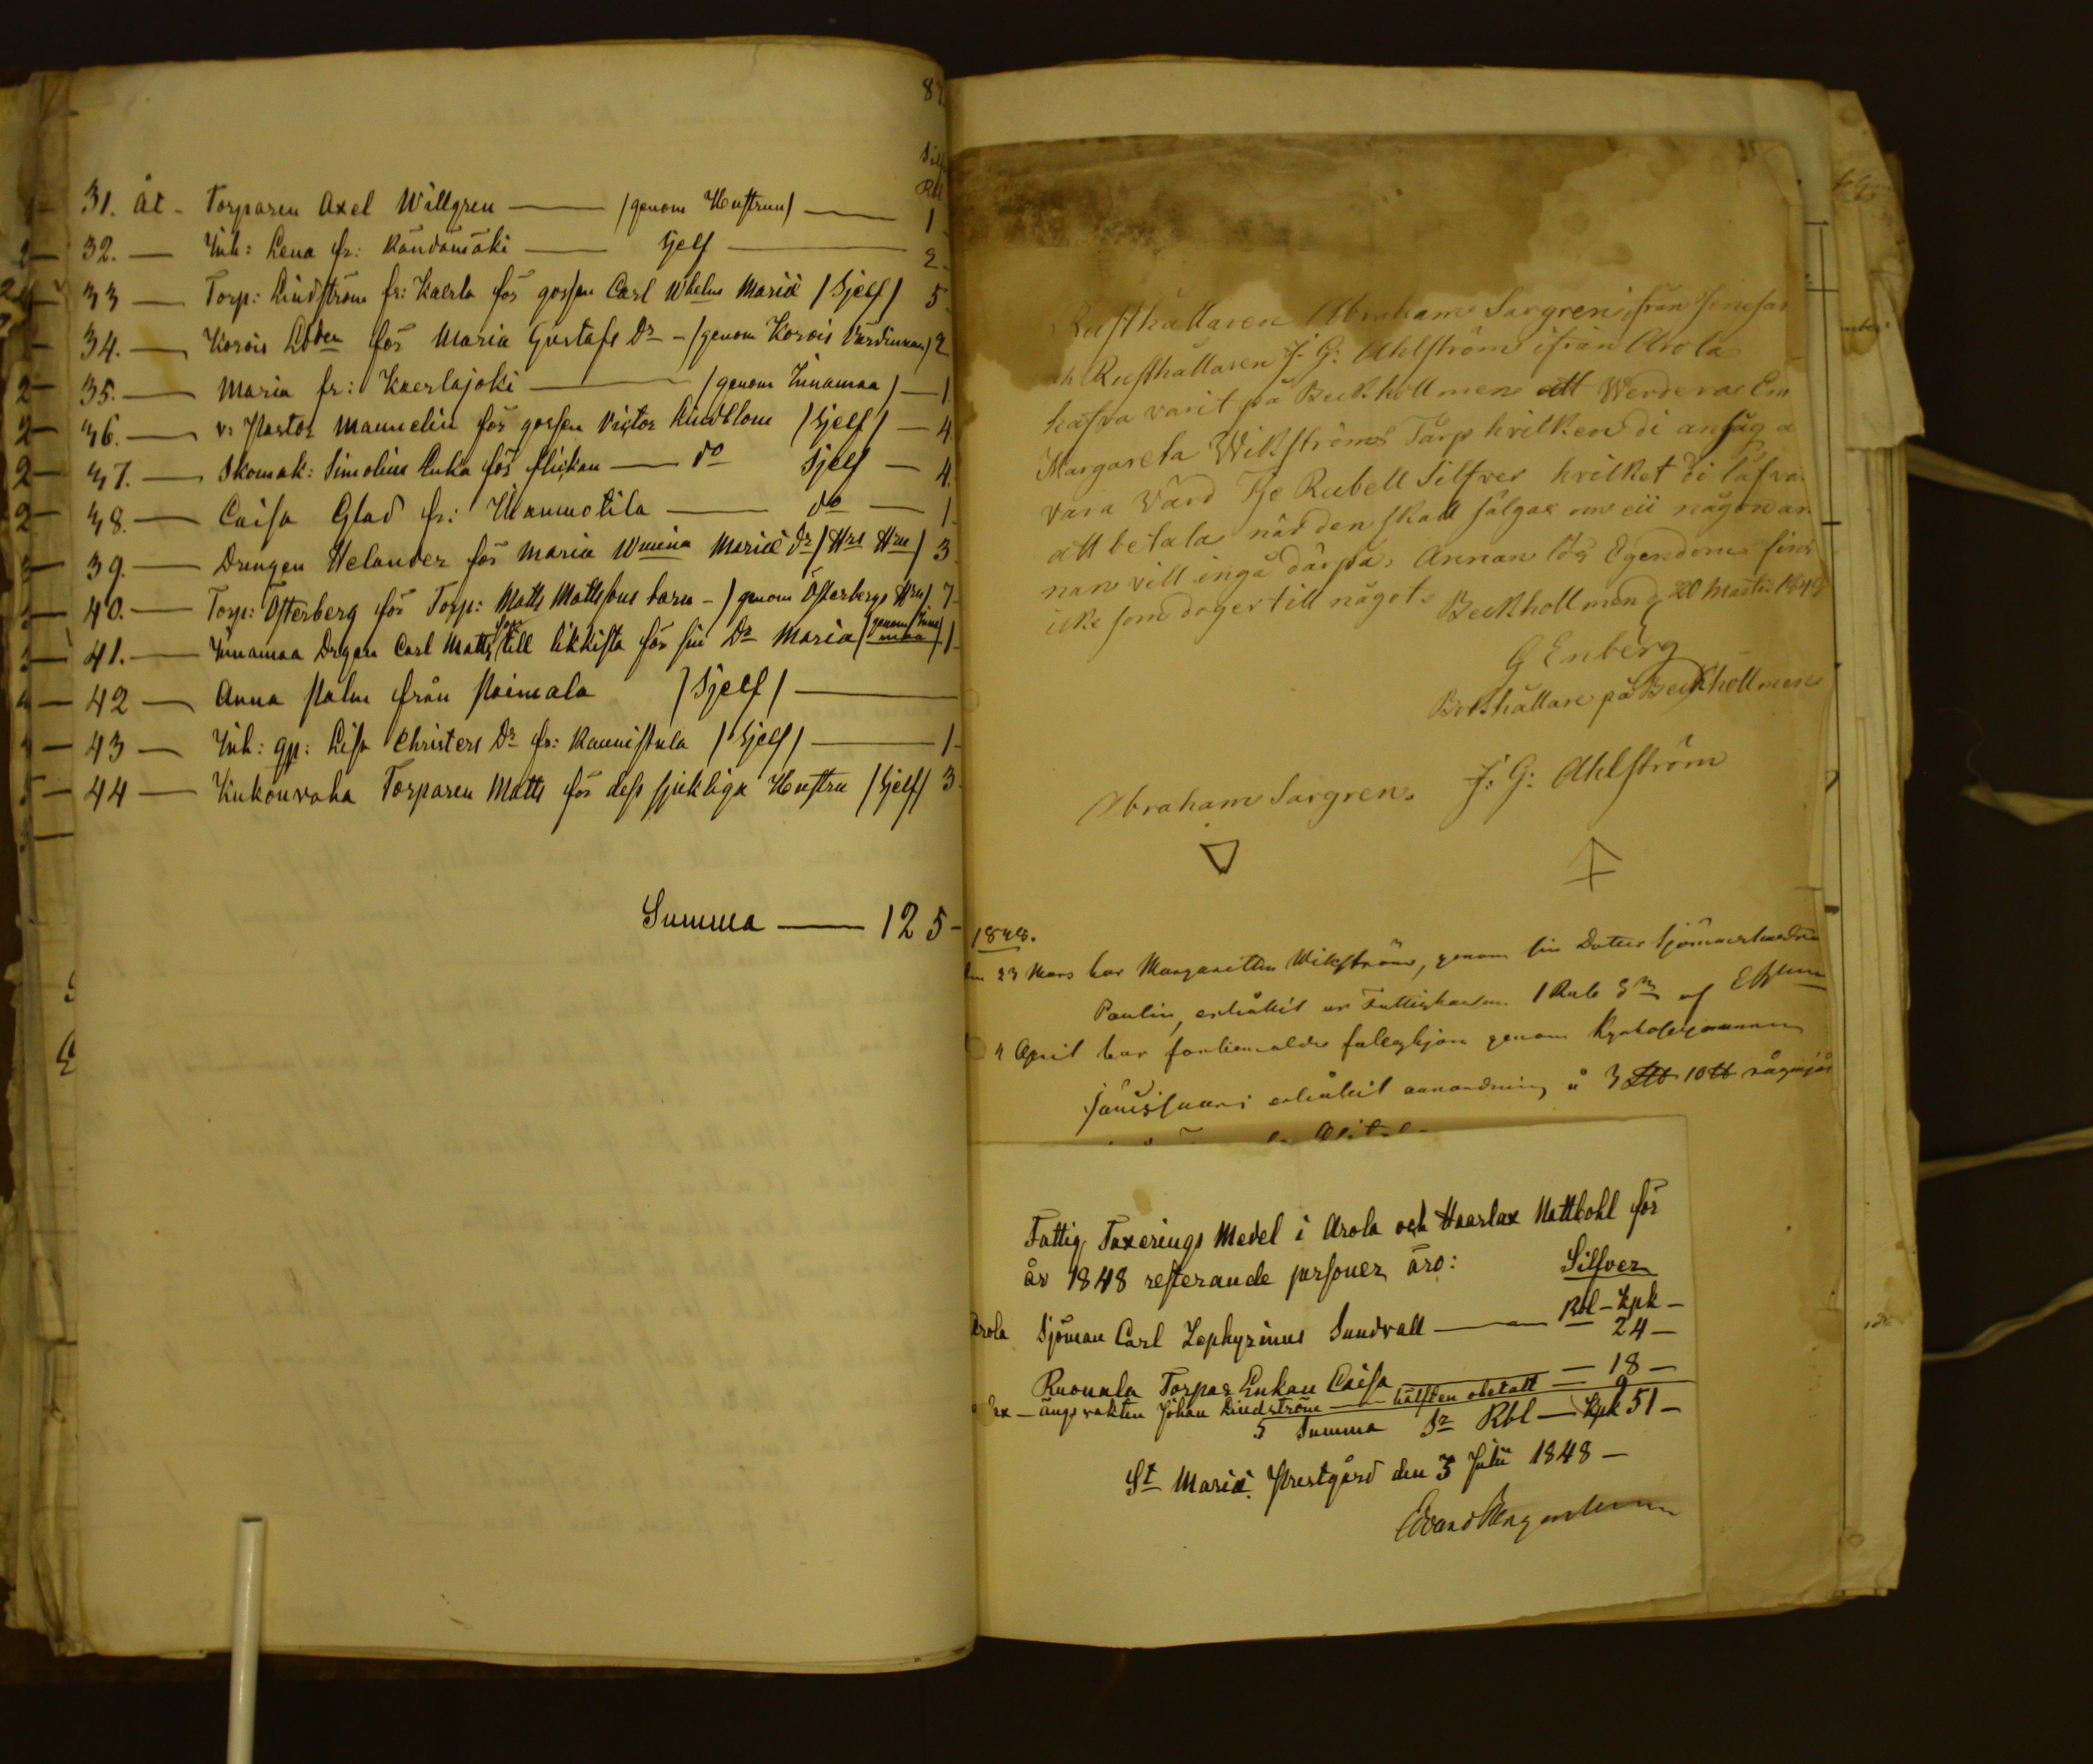 87
Silf
Rbl
31. åt - Torparen Axel Willgren — (genom Hustrun) — 1
32. — Inh: Lena fr: Rändämäki — Sjelf — 2
33 — Torp: Lindström fr: Kaerla för gossen Carl Whelm Mariæ (Sjelf) 5
34. — Korois Ldden för Maria Gustafs Dr - (genom Korois Värdinnan) 2
35. — Maria fr: Kaerlajoki — (genom Innamaa) — 1
36. — v. Pastor Mannelin för gossen Victor Lindblom (Sjelf) — 4
37. — Skomak: Simolins Enka för flickan — do Sjelf — 4
38. — Caisa Glad fr: — do — 1
39. — Drengen Helander för Maria Wmina Mariæ Dr (Hrs Hru) 3
40. — Torp: Österberg för Torp: Matts Mattssons barn - (genom Österbergs Hru) 7
41. — Innamaa Drgen Carl Matts son till likkista för sin Dr Maria (genom Inna maa) 1
42 — Anna Palm från Paimala (Sjelf) —
43 — Inh: gp: Lisa Christers Dr fr: Raunistula (Sjelf) — 1
44 — Kukonvaha Torparen Matts för dess sjukliga Hustru (Sjelf) 3
Summa — 125 -
Rusthållaren Abraham Sargren ifrån
Rusthållaren J. G: Ahlström ifrån Arola
hafva varit på Beckhollmen att Werdera
Margareta Wikströms Tårp hvilken di ansåg
vara Värd Tje Rubell Silfver hvilket di
att betala når den skall sålgas om eii någon an
nan vill ingå dårpå. Annan lös Egendom fins
icke som doger till något. Beckhollmen d 20 Martii 1848
G Enberg
Bokhållare på Beckhollmen
Abraham Sargren. J: G: Ahlström
1848.
23 Mars har Margaretha Wikström, genom sin Dotter
Paulin, erhållit ur Fattigkassan 1 Rub Sr af
April har förbemälde genom
erhållit anordning å 3 10 tt rågmjöl
Fattig Taxerings Medel i Arola och Haarlax Mattbohl för
år 1848 resterande personer äro: Silfver
Rbl - Kpk -
Arola Sjöman Carl Zephyrinus Sundvall — 24 -
Ruonala Torpar Enkan Caisa — 18 -
lax - ängsvakten Johan Lindström — hälften obetalt — 9
S Summa Sr Rbl — Kpk 51 -
St Mariæ Prestgård den 3 Julii 1848 -